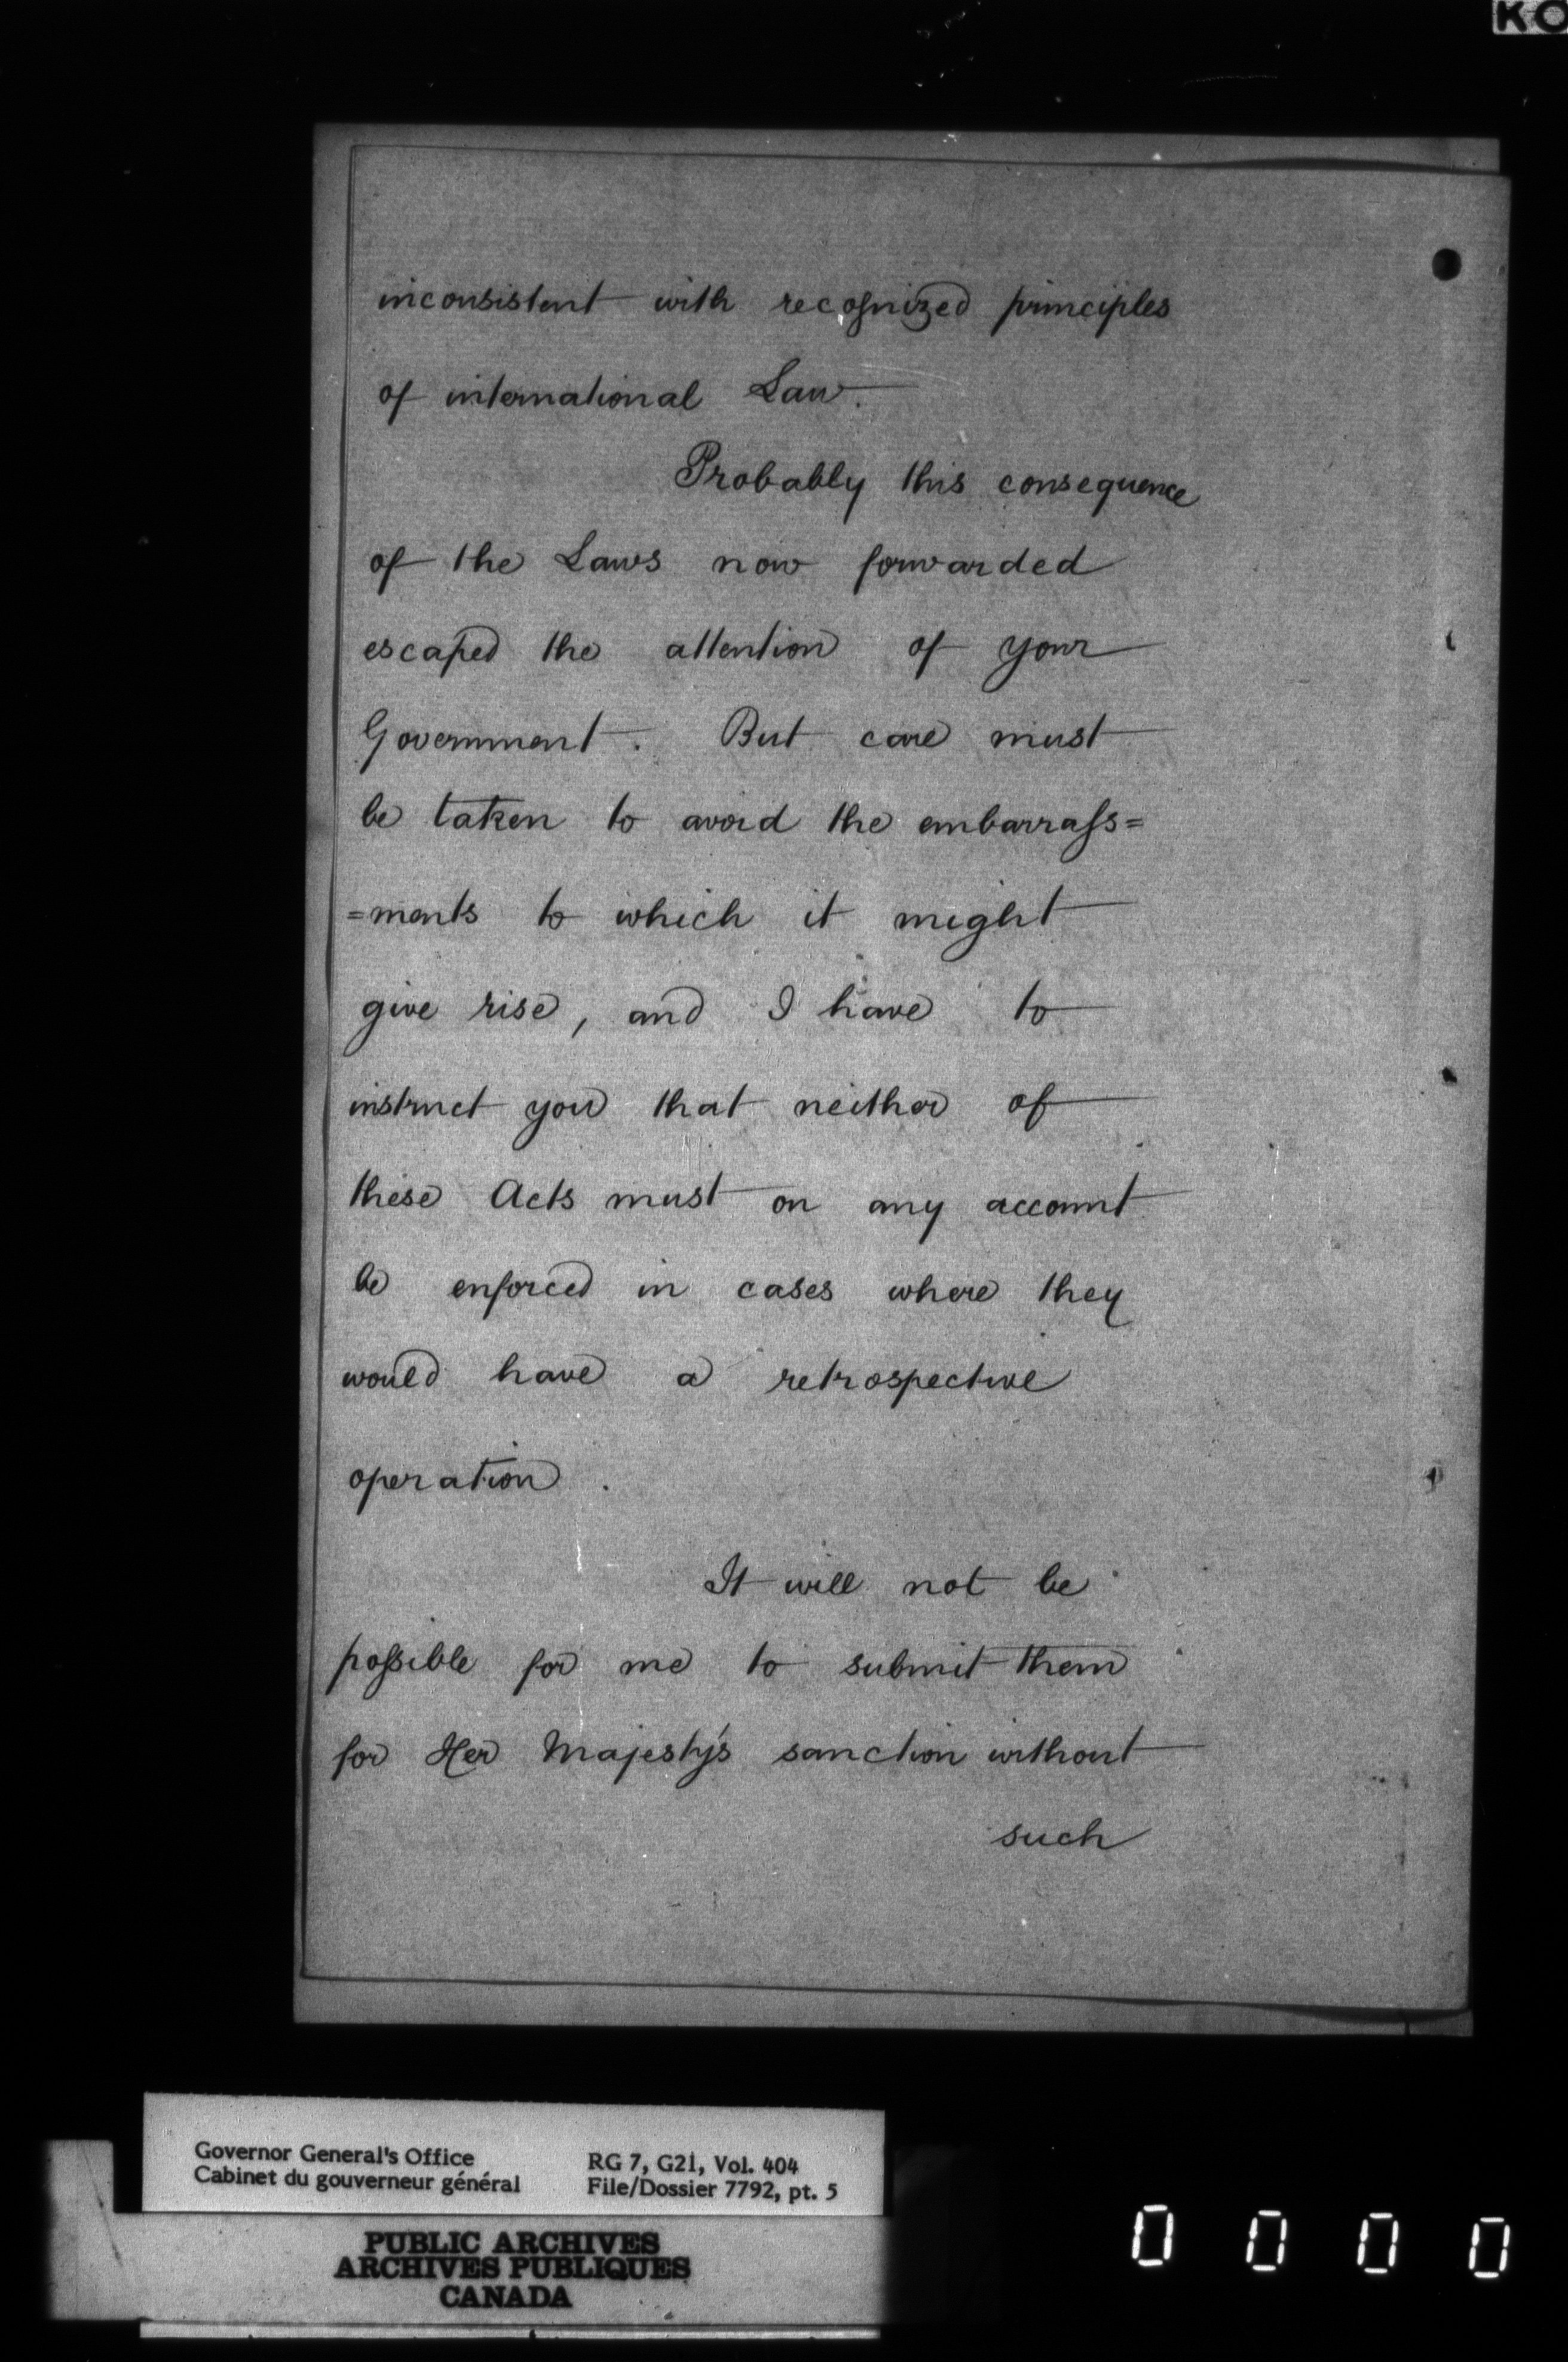 KO
inconsistent with recognized principles
of international Law.
Probably this consequence
of the Laws now forwarded
escaped the attention of your
Government. But care must
be taken to avoid the embarraſs=
=ments to which it might
give rise, and I have to
instruct you that neither of
these Acts must on any account
be enforced in cases where they
would have a retrospective
operation.
It will not be
poſsible for me to submit them
for Her Majesty's sanction without
such
Governor General's Office RG 7, G21, Vol. 404
Cabinet du gouverneur général File/Dossier 7792, pt. 5
PUBLIC ARCHIVES
ARCHIVES PUBLIQUES
CANADA
0 0 0 0